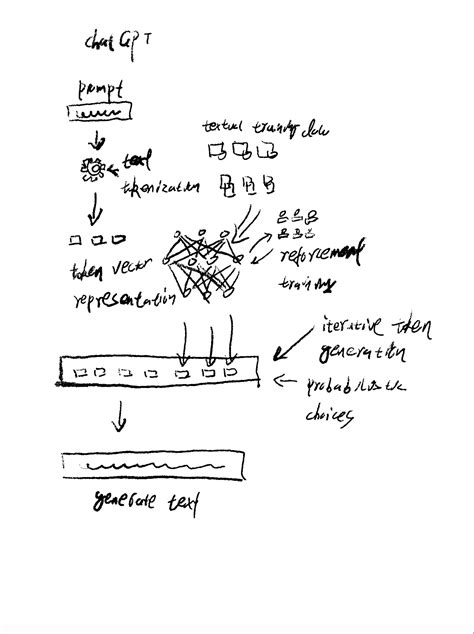 chat GPT
prompt
text
tokenization
textual training data
token vector
representation
reforcement
training
iterative token
generation
probabilistic
choices
generate text